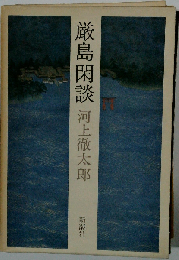 厳島閑談
河上徹太郎
新潮社